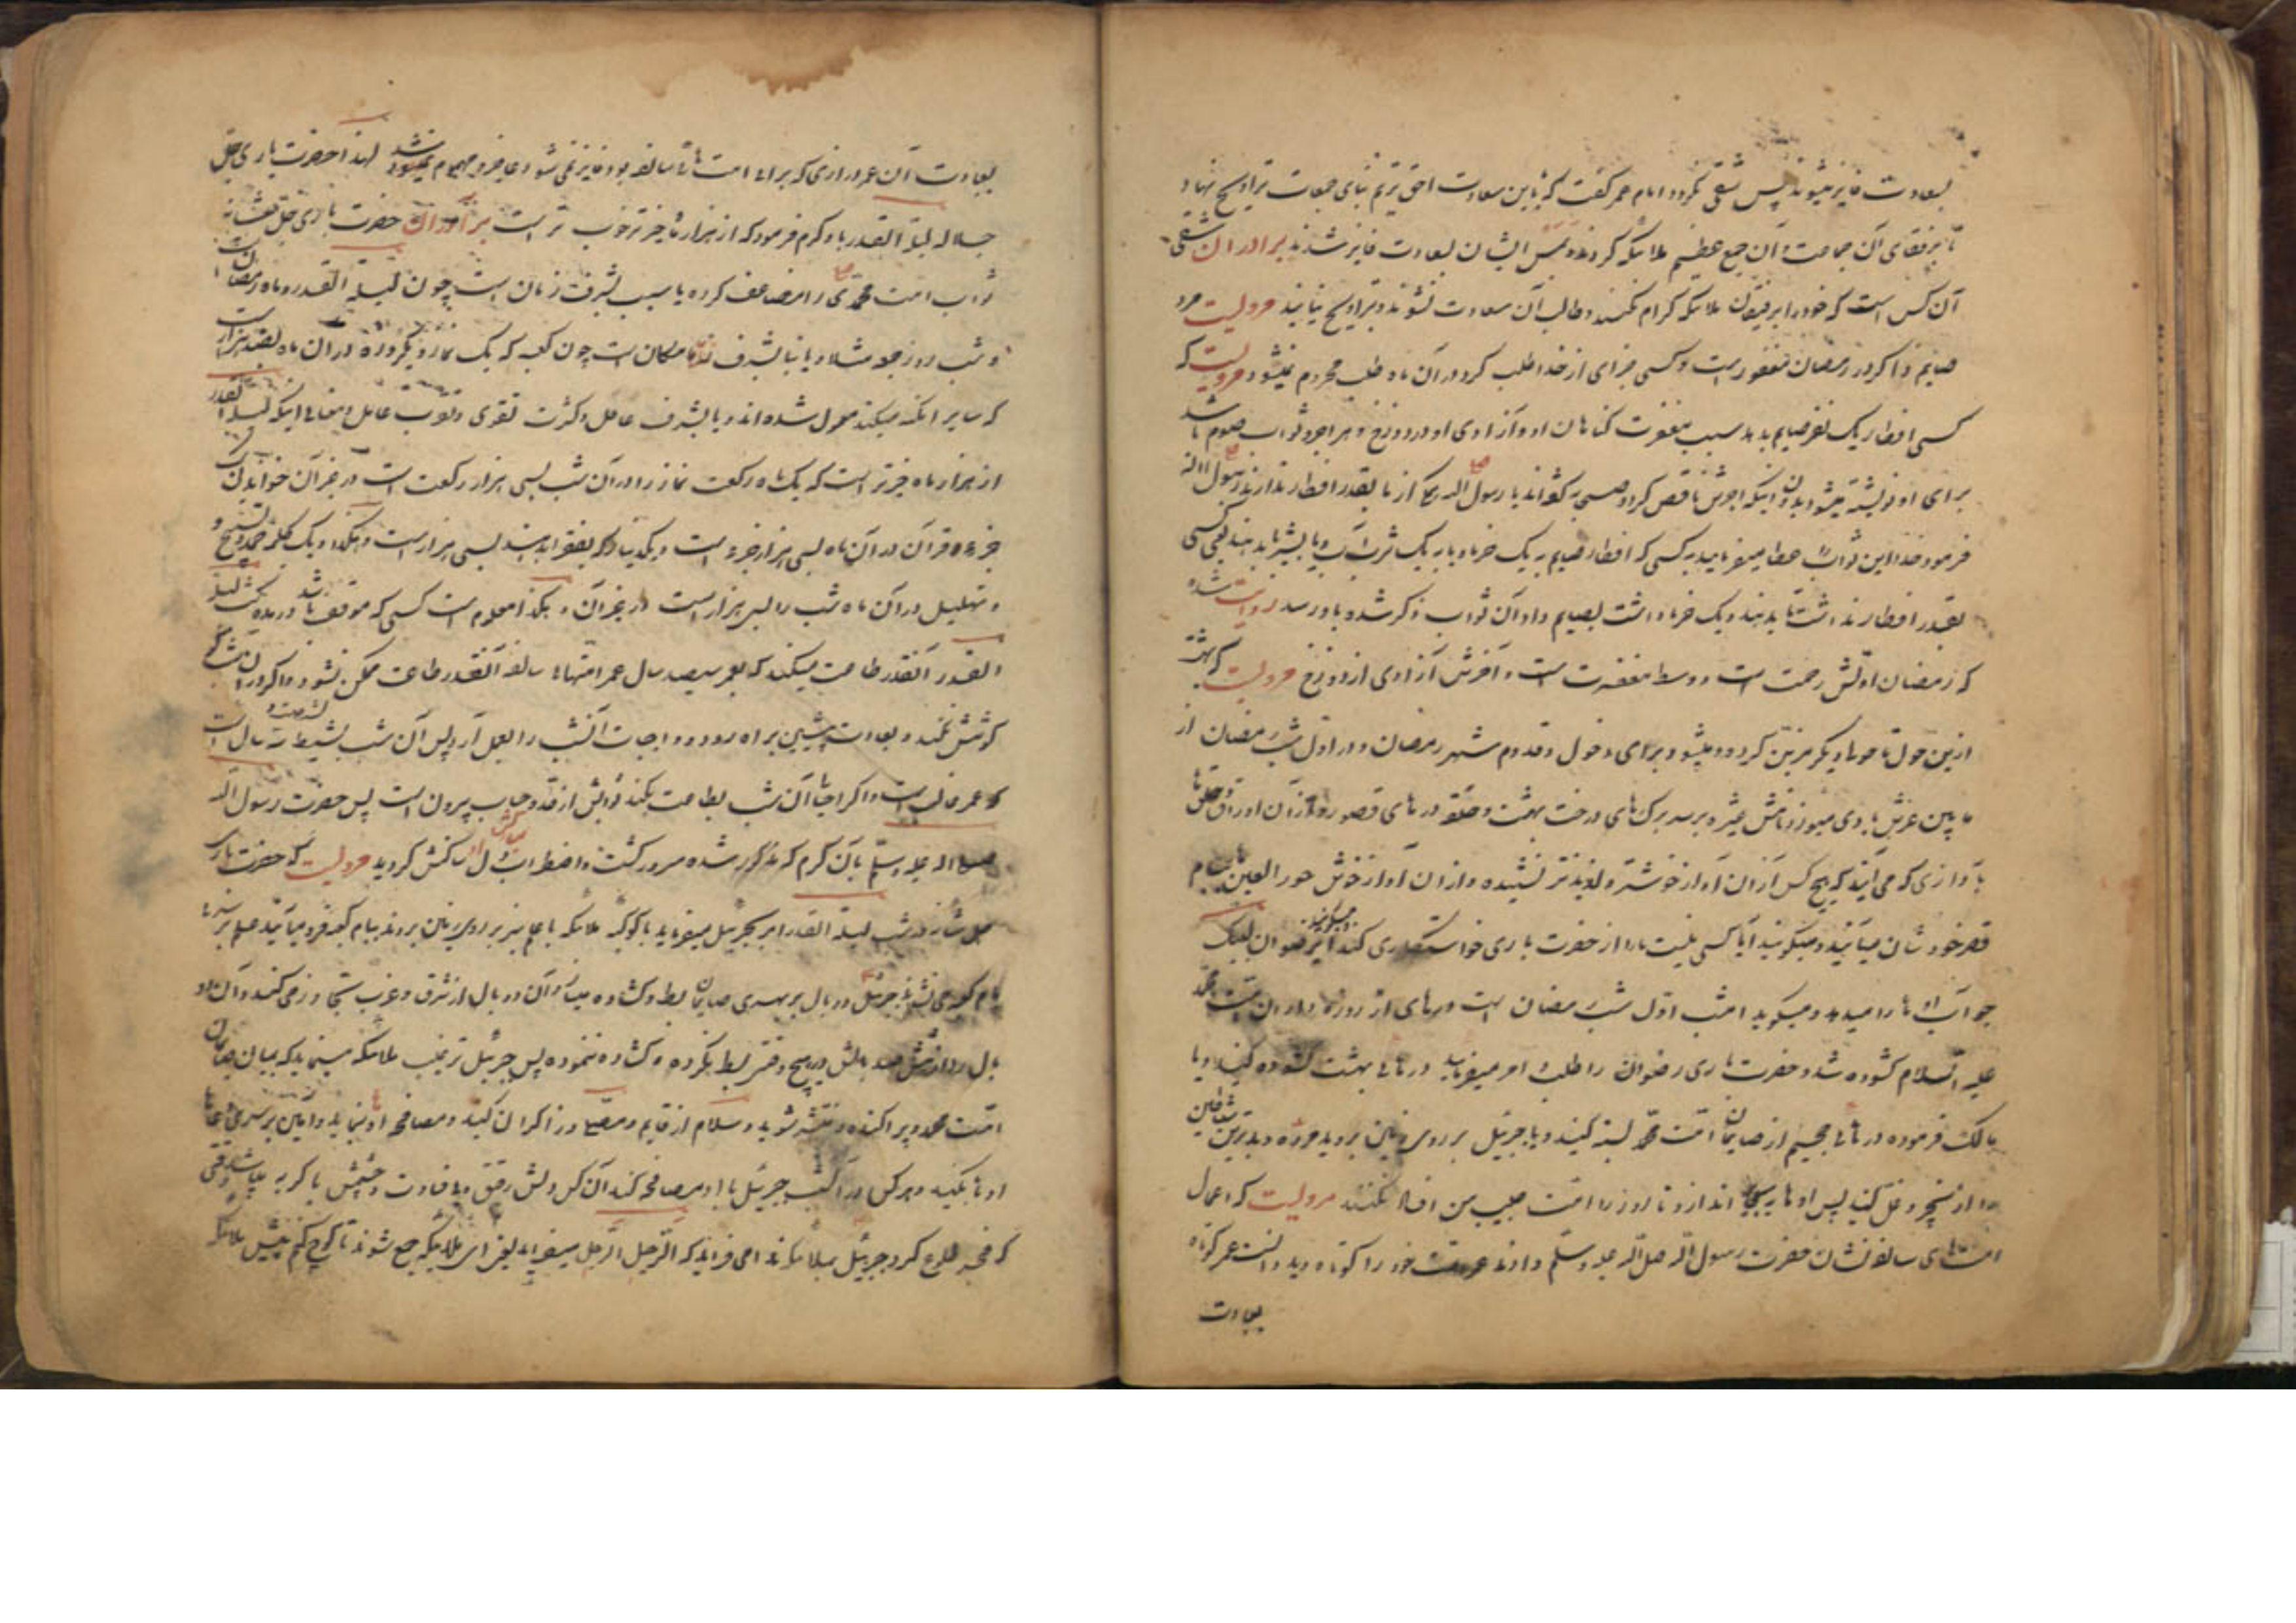 بسعادت فایز میشوند پس شقی نگردد امام عمر گفت که باین سعادت احق تریم بنای جماعت تراویح نهاد
تا برفقای آن جماعت آن جمع عظیم ملائکه کردند و بمس ایشان بسعادت فایز شدند برادران شقی
آن کس است که خود را برفیقان ملائکه کرام نکنند و طالب آن سعادت نشوند و بتراویح نیایند مرویست مرد
صایم ذاکر در رمضان مغفور است و کسی چیزی از خدا طلب کرد در آن ماه طلب محروم نمیشود مرویست که
کسی افطار یک نفر صایم بدهد سبب مغفرت کناهان او و آزادی او از دوزخ و برابر ثواب صوم باشد
برای او نوشته میشود بدون اینکه اجرش ناقص کرد صحابه کفتند یا رسول الله همکی از ما بقدر افطار ندارند رسول الله
فرمود خدا این ثواب عطا میفرماید به کسی که افطار صایم به یک خرما و یا به یک شربت آب و یا بشیر بدهند یعنی کسی
بقدر افطار نداشت تا بدهند و یک خرما داشت بصایم داد آن ثواب ذکر شده باو رسد روایت شده
که رمضان اولش رحمت است و وسط مغفرت است و آخرش آزادی از دوزخ مرویست که بهشت
ازین حول تا حول دیگر مزین کرده میشود برای دخول و قدوم شهر رمضان و در اول شب رمضان از
ما بین عرش بادی میوزد نامش مثیره برسد برک های درخت بهشت و حلقه در های قصور و از آن اوراق و حلقها
با آوازی که می آیند که هیچ کس از آن آواز خوشتر و لذیذتر نشنیده و از آن آواز خوش حور العین بنام
قصر خودشان میآیند و میکویند آیا کسی نیست ما را از حضرت باری خواستکاری کند میکویند ای رضوان لبیک
جواب آنها را میدهد و میکوید امشب اول شب رمضان است درهای از روزه داران امت محمد
علیه السلام کشوده شد و حضرت باری رضوان را طلب امر میفرماید درهای بهشت کشوده کنید و یا
مالک فرموده درهای جحیم از صایمان امت محمد بسته کنید و یا جبرئیل بر روی زمین بروید مرده و بدترین شیاطین
را زنجیر و غل کنید پس اوها بدریا اندازد تا روزه امت حبیب من افساد نکنند مرویست که اعمال
امت های سالفه نشان حضرت رسول الله صلی الله علیه و سلم دادند عمر امت خود را کوتاه دید دانست عمر کوتاه
بعبادت
بعبادت آن عمر درازی که برای امت های سالفه بود فایز نمی شود غمین و مهموم شد لهذا حضرت باری جل
جلاله لیلة القدر باو کرم فرمود که از هزار ماه خیرتر خوب تر است برادران حضرت باری جل شانه
ثواب امت محمدی را مضاعف کرده یا سبب بشرف زمان است چون لیلة القدر و ماه رمضان
و شب روز جمعه مثلا و یا بنا بشرف مکان است چون کعبه که یک نماز و یکروزه در آن ماه بصد هزار است
که سایر امکنه میکند معمول شده اند و یا بشرف عامل و کثرت تقوی و تقرب عامل و معنای اینکه لیلة القدر
از هزار ماه خیرتر است که یک رکعت نماز را در آن شب بسی هزار رکعت است در غیر آن خواندن
جزء قرآن در آن ماه بسی هزار جزء است و یک دینار که بفقرا بدهند بسی هزار است و هکذا و یک کلمه تحمید و تسبیح و
و تهلیل در آن ماه شب را بسی هزار است در غیر آن و هکذا معلوم است کسی که موفق باشد در مدت لیلة
القدر آنقدر طاعت میکند که بعمر سیصد سال عمر امتهای سالفه آنقدر طاعت ممکن نشود و اکر در آن شب
کوشش نکند و بعبادت پیشین براه رود و واجبات آنشب را بعمل آرد پس آن شب بشصت و سه سال است
که عمر غالب است و اکر احیا آن شب بطاعت بکند ثوابش از حد و حساب بیرون است پس حضرت رسول الله
صلی الله علیه و سلم بآن کرم که مذکور شده مسرور کشت و اضطراب دل مبارکش ساکنش کردید مرویست که حضرت باری
جل شانه در شب لیلة القدر امر بجبرئیل میفرماید با کوکبه ملائکه با علم سبز بر روی زمین بروند ببام کعبه فرود میآیند علم بر سر
بام کعبه می نشاند جبرئیل دو بال بر سر صایمان بسط و کشاده میسازد آن دو بال از شرق و غرب تجاوز می کنند و آن دو
بال را از شش صد بالش در هیچ وقتی بسط نکرده و کشاده ننموده پس جبرئیل ترغیب ملائکه مینماید که بمیان صایمان
امت محمد پراکنده و منتشر شوید و سلام از قایم و مصلی و ذاکران کنید و مصافحه اوها نماید و آمین بر سر دعای
اوها بکنید و هر کس در آنشب جبرئیل با او مصافحه کند آن کس دلش رقق و با حلاوت و چشمش با کریه میباشد وقتی
که فجر طلوع کرد جبرئیل بملائکه ندا می فرماید که الرحیل الرحیل میفرماید یعنی ای ملائکه جمع شوند تا کوچ کنیم پیش ملائکه